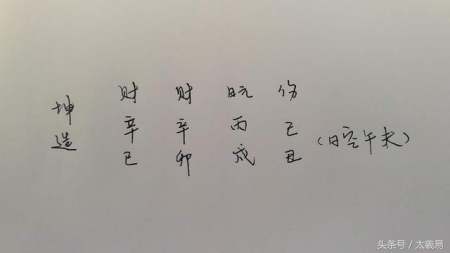 坤造
财 财 日元 伤
辛 辛 丙 己
巳 卯 戌 丑 (日空午未)
头条号 / 太羲易